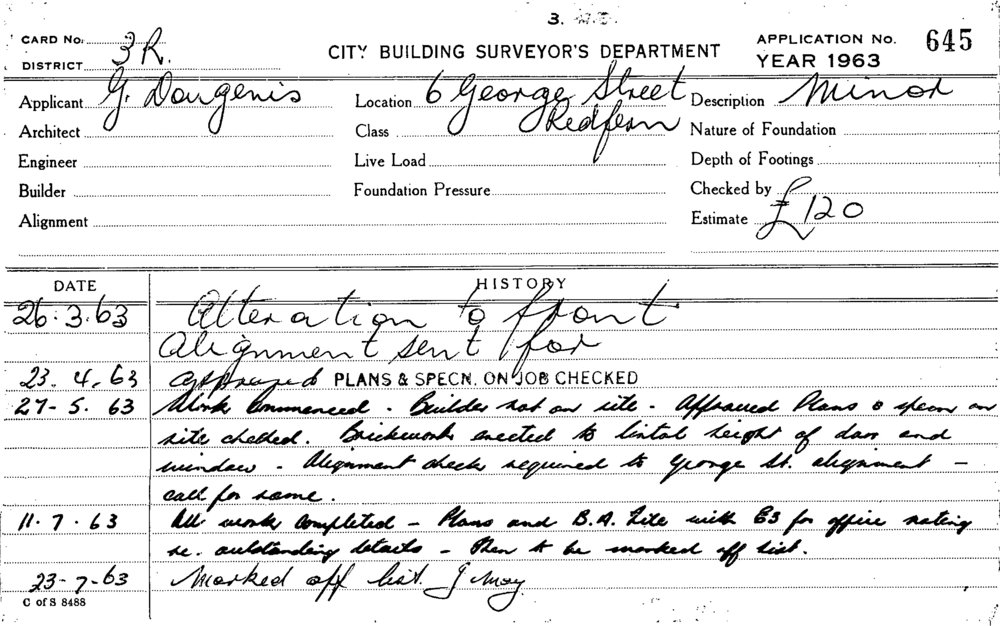 3.
CARD No. 3R.
DISTRICT
CITY BUILDING SURVEYOR'S DEPARTMENT
APPLICATION No. 645
YEAR 1963
Applicant G. Dougenis
Location 6 George Street
Redfern
Description Minor
Architect
Class
Nature of Foundation
Engineer
Live Load
Depth of Footings
Builder
Foundation Pressure
Checked by
Alignment
Estimate £120
DATE HISTORY
26.3.63 Alteration to front
Alignment sent for
23.4.63 approved PLANS & SPECN. ON JOB CHECKED
27-5.63 Work Commenced. Builder not on site. Approved Plans & specn on
site checked. Brickwork erected to lintal height of door and
window - Alignment check required to George St. alignment -
call for same.
11.7.63 All work completed - Plans and B.A. File with for office noting
re. outstanding details - Then to be marked off list.
23-7.63 Marked off list. J May
C of S 8488